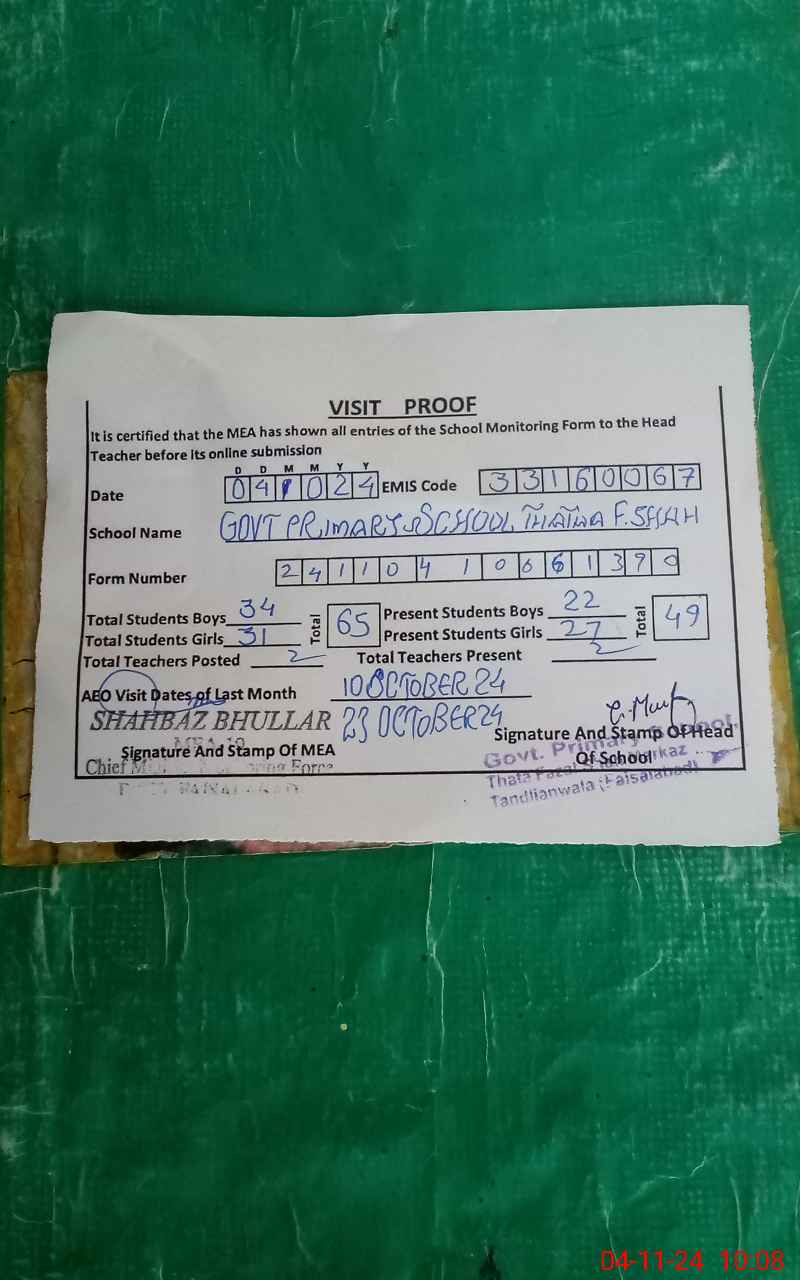 VISIT PROOF
It is certified that the MEA has shown all entries of the School Monitoring Form to the Head
Teacher before its online submission
D D M M Y Y
Date 04 1 024 EMIS Code 33160067
School Name GOVT PRIMARY SCHOOL THATHA F.SHAH
Form Number 2411041061390
Total Students Boys 34 Total 65 Present Students Boys 22 Total 49
Total Students Girls 31 Present Students Girls 27
Total Teachers Posted 2 Total Teachers Present 2
AEO Visit Dates of Last Month 10 OCTOBER 24
SHAHBAZ BHULLAR 23 OCTOBER 24
Signature And Stamp Of MEA
Chief
Signature And Stamp Of Head
Of School
Govt. Primary School,
Thata Fazal Markaz
Tandlianwala (Faisalabad)
04-11-24 10:08